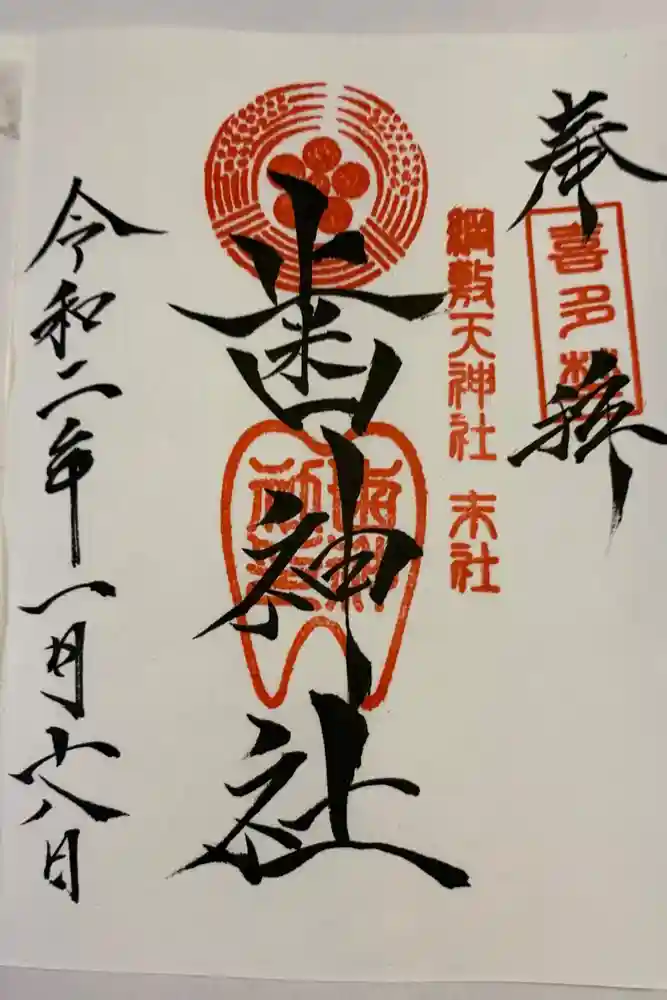 奉拝
喜多埜
綱敷天神社 末社
歯神社
令和二年一月廿八日